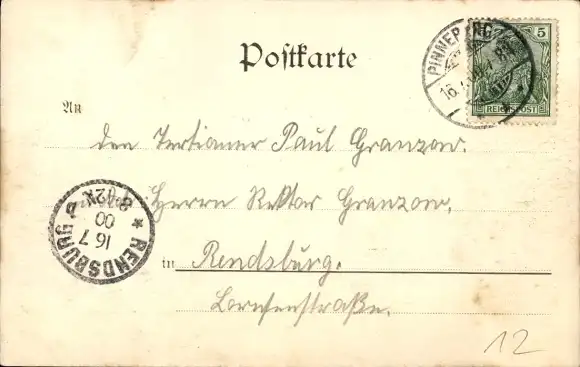 Postkarte
PINNEBERG
16.7.00
5
REICHSPOST
An
den Tertianer Paul Granzow.
Herrn Rektor Granzow,
RENDSBURG
16 7
00
in Rendsburg.
Lornsenstraße.
12